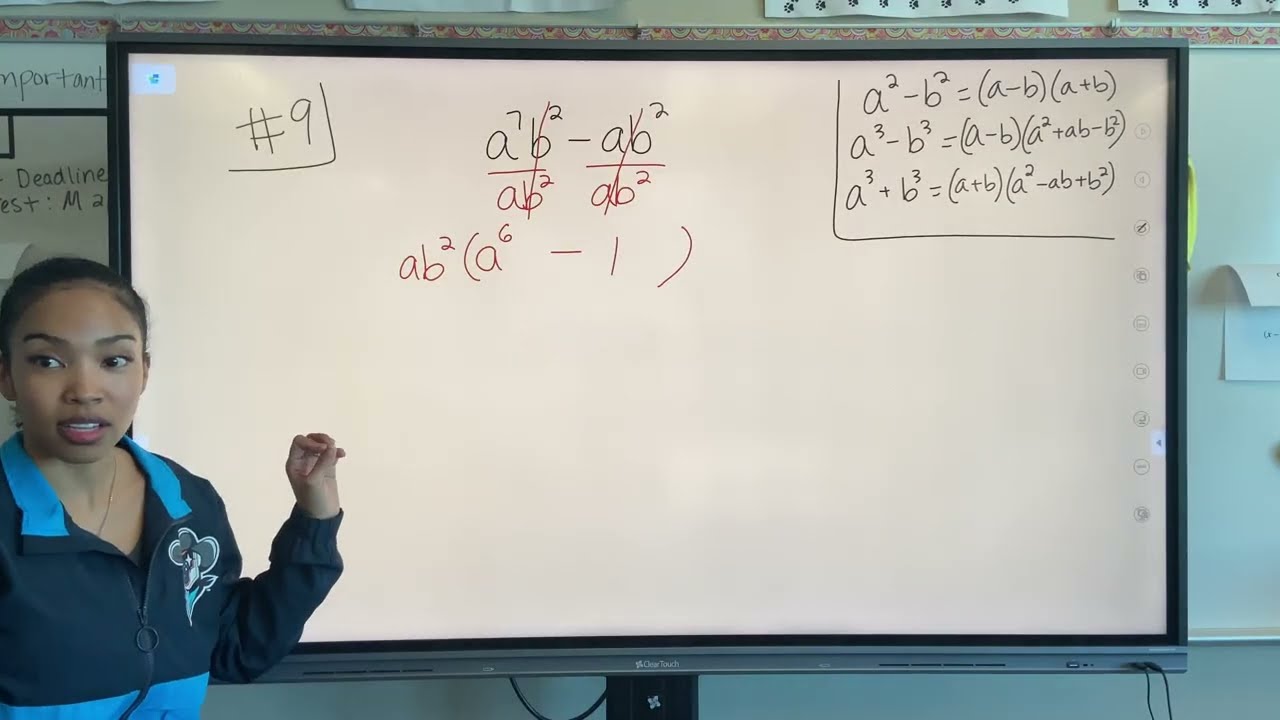 mportant
Deadline
est: M 2
#9
a⁷b² − ab²
ab² ab²
ab²(a⁶ − 1 )
a² − b² = (a−b)(a+b)
a³ − b³ = (a−b)(a²+ab−b²)
a³ + b³ = (a+b)(a²−ab+b²)
(x−
ClearTouch